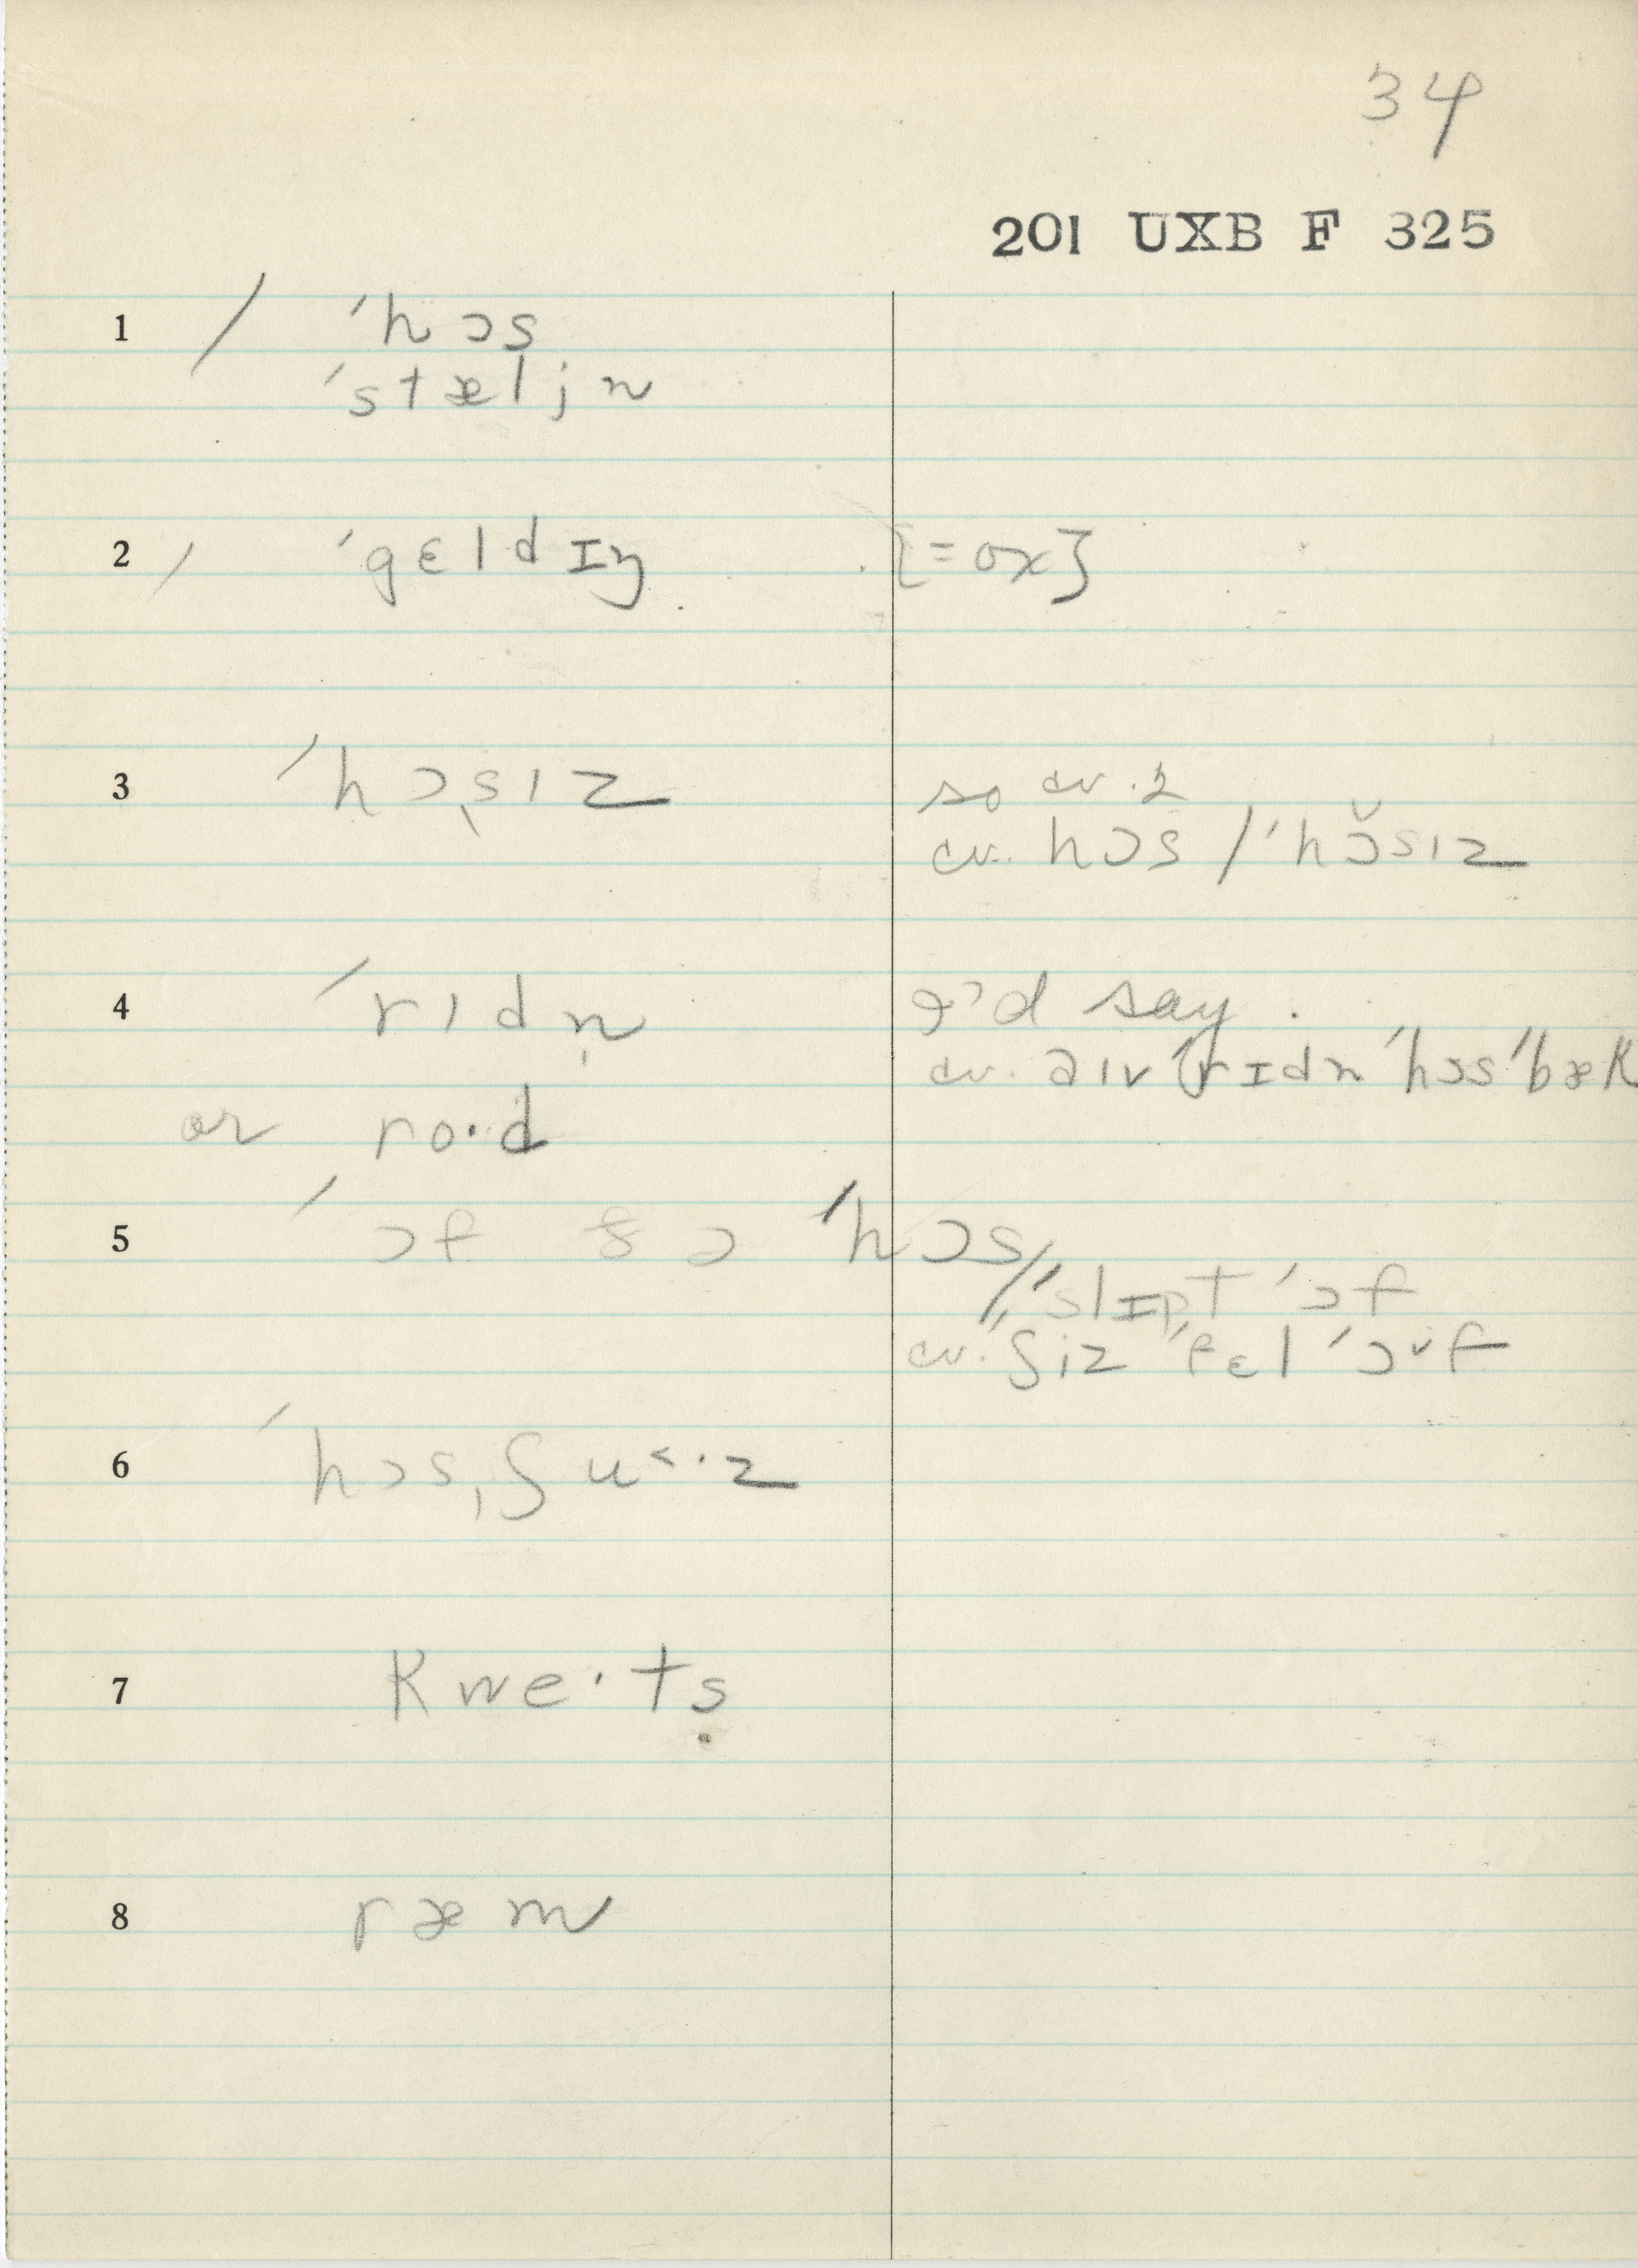 34
201 UXB F 325
1 / ˈhɔs
ˈstæljn
2 / ˈgɛldɪŋ [=ox]
3 ˈhɔsɪz so cv. 2
cv. hɔs / ˈhɔ̆sɪz
4 ˈrɪdn̩ I'd say.
cv. aɪv ˈrɪdn ˈhɔsˈbæk
or ro·d
5 ˈɔf ðə ˈhɔs
// ˈslɪpt ˈɔf
cv. ʃiz ˈfɛl ˈɔˇf
6 ˈhɔsˌʃu˂·z
7 kwe·ts
8 ræm